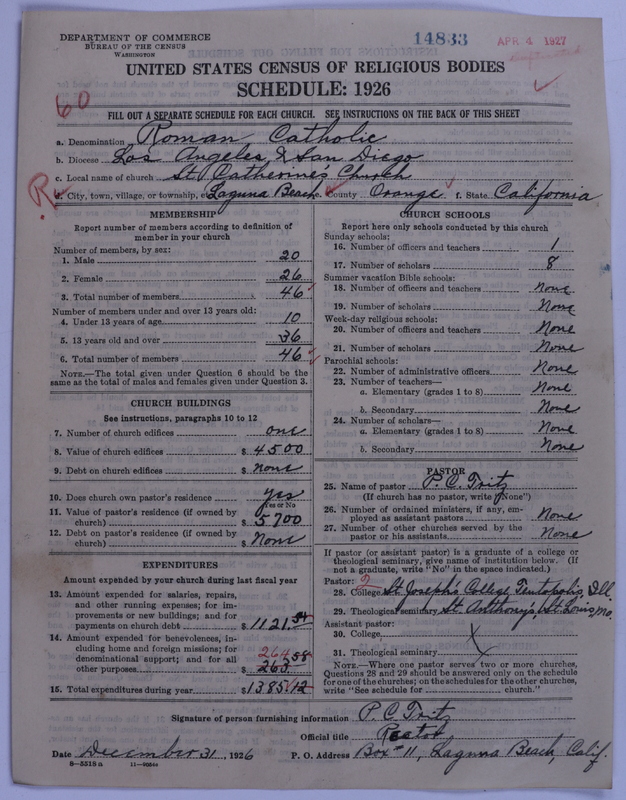 DEPARTMENT OF COMMERCE
BUREAU OF THE CENSUS
WASHINGTON
14833
APR 4 1927
UNITED STATES CENSUS OF RELIGIOUS BODIES
SCHEDULE: 1926
60
FILL OUT A SEPARATE SCHEDULE FOR EACH CHURCH. SEE INSTRUCTIONS ON THE BACK OF THIS SHEET
a. Denomination Roman Catholic
b. Diocese Los Angeles & San Diego
c. Local name of church St Catherine's Church
R d. City, town, village, or township, Laguna Beach e. County Orange f. State California
MEMBERSHIP
Report number of members according to definition of
member in your church
Number of members, by sex:
1. Male 20
2. Female 26
3. Total number of members 46
Number of members under and over 13 years old:
4. Under 13 years of age 10
5. 13 years old and over 36
6. Total number of members 46
NOTE.—The total given under Question 6 should be
same as the total of males and females given under Question 3.
CHURCH BUILDINGS
See instructions, paragraphs 10 to 12
7. Number of church edifices one
8. Value of church edifices $ 4500
9. Debt on church edifices $ none
10. Does church own pastor's residence yes
Yes or No
11. Value of pastor's residence (if owned by
church) $ 5700
12. Debt on pastor's residence (if owned by
church) $ None
EXPENDITURES
Amount expended by your church during last fiscal year
13. Amount expended for salaries, repairs,
and other running expenses; for im-
provements or new buildings; and for
payments on church debt $ 1121.54
14. Amount expended for benevolences, in-
cluding home and foreign missions; for
denominational support; and for all
other purposes $ 263 264 58
15. Total expenditures during year $ 1385/12
CHURCH SCHOOLS
Report here only schools conducted by this church
Sunday schools:
16. Number of officers and teachers 1
17. Number of scholars 8
Summer vacation Bible schools:
18. Number of officers and teachers none
19. Number of scholars None
Week-day religious schools:
20. Number of officers and teachers None
21. Number of scholars None
Parochial schools:
22. Number of administrative officers None
23. Number of teachers—
a. Elementary (grades 1 to 8) None
b. Secondary None
24. Number of scholars—
a. Elementary (grades 1 to 8) None
b. Secondary None
PASTOR
25. Name of pastor P. C. Tritz
(If church has no pastor, write "None")
26. Number of ordained ministers, if any, em-
ployed as assistant pastors None
27. Number of other churches served by the
pastor or his assistants None
If pastor (or assistant pastor) is a graduate of a college or
theological seminary, give name of institution below. (If
not a graduate, write "No" in the space indicated.)
Pastor: 2
28. College St Joseph's College Teutopolis, Ill.
29. Theological seminary St. Anthony's, St Louis, Mo.
Assistant pastor:
30. College
31. Theological seminary
NOTE.—Where one pastor serves two or more churches,
Questions 28 and 29 should be answered only on the schedule
for one of the churches; on the schedules for the other churches,
write "See schedule for church."
Signature of person furnishing information P. C. Tritz
Official title Rector
Date December 31, 1926 P. O. Address Box #11, Laguna Beach, Calif.
8—5518a